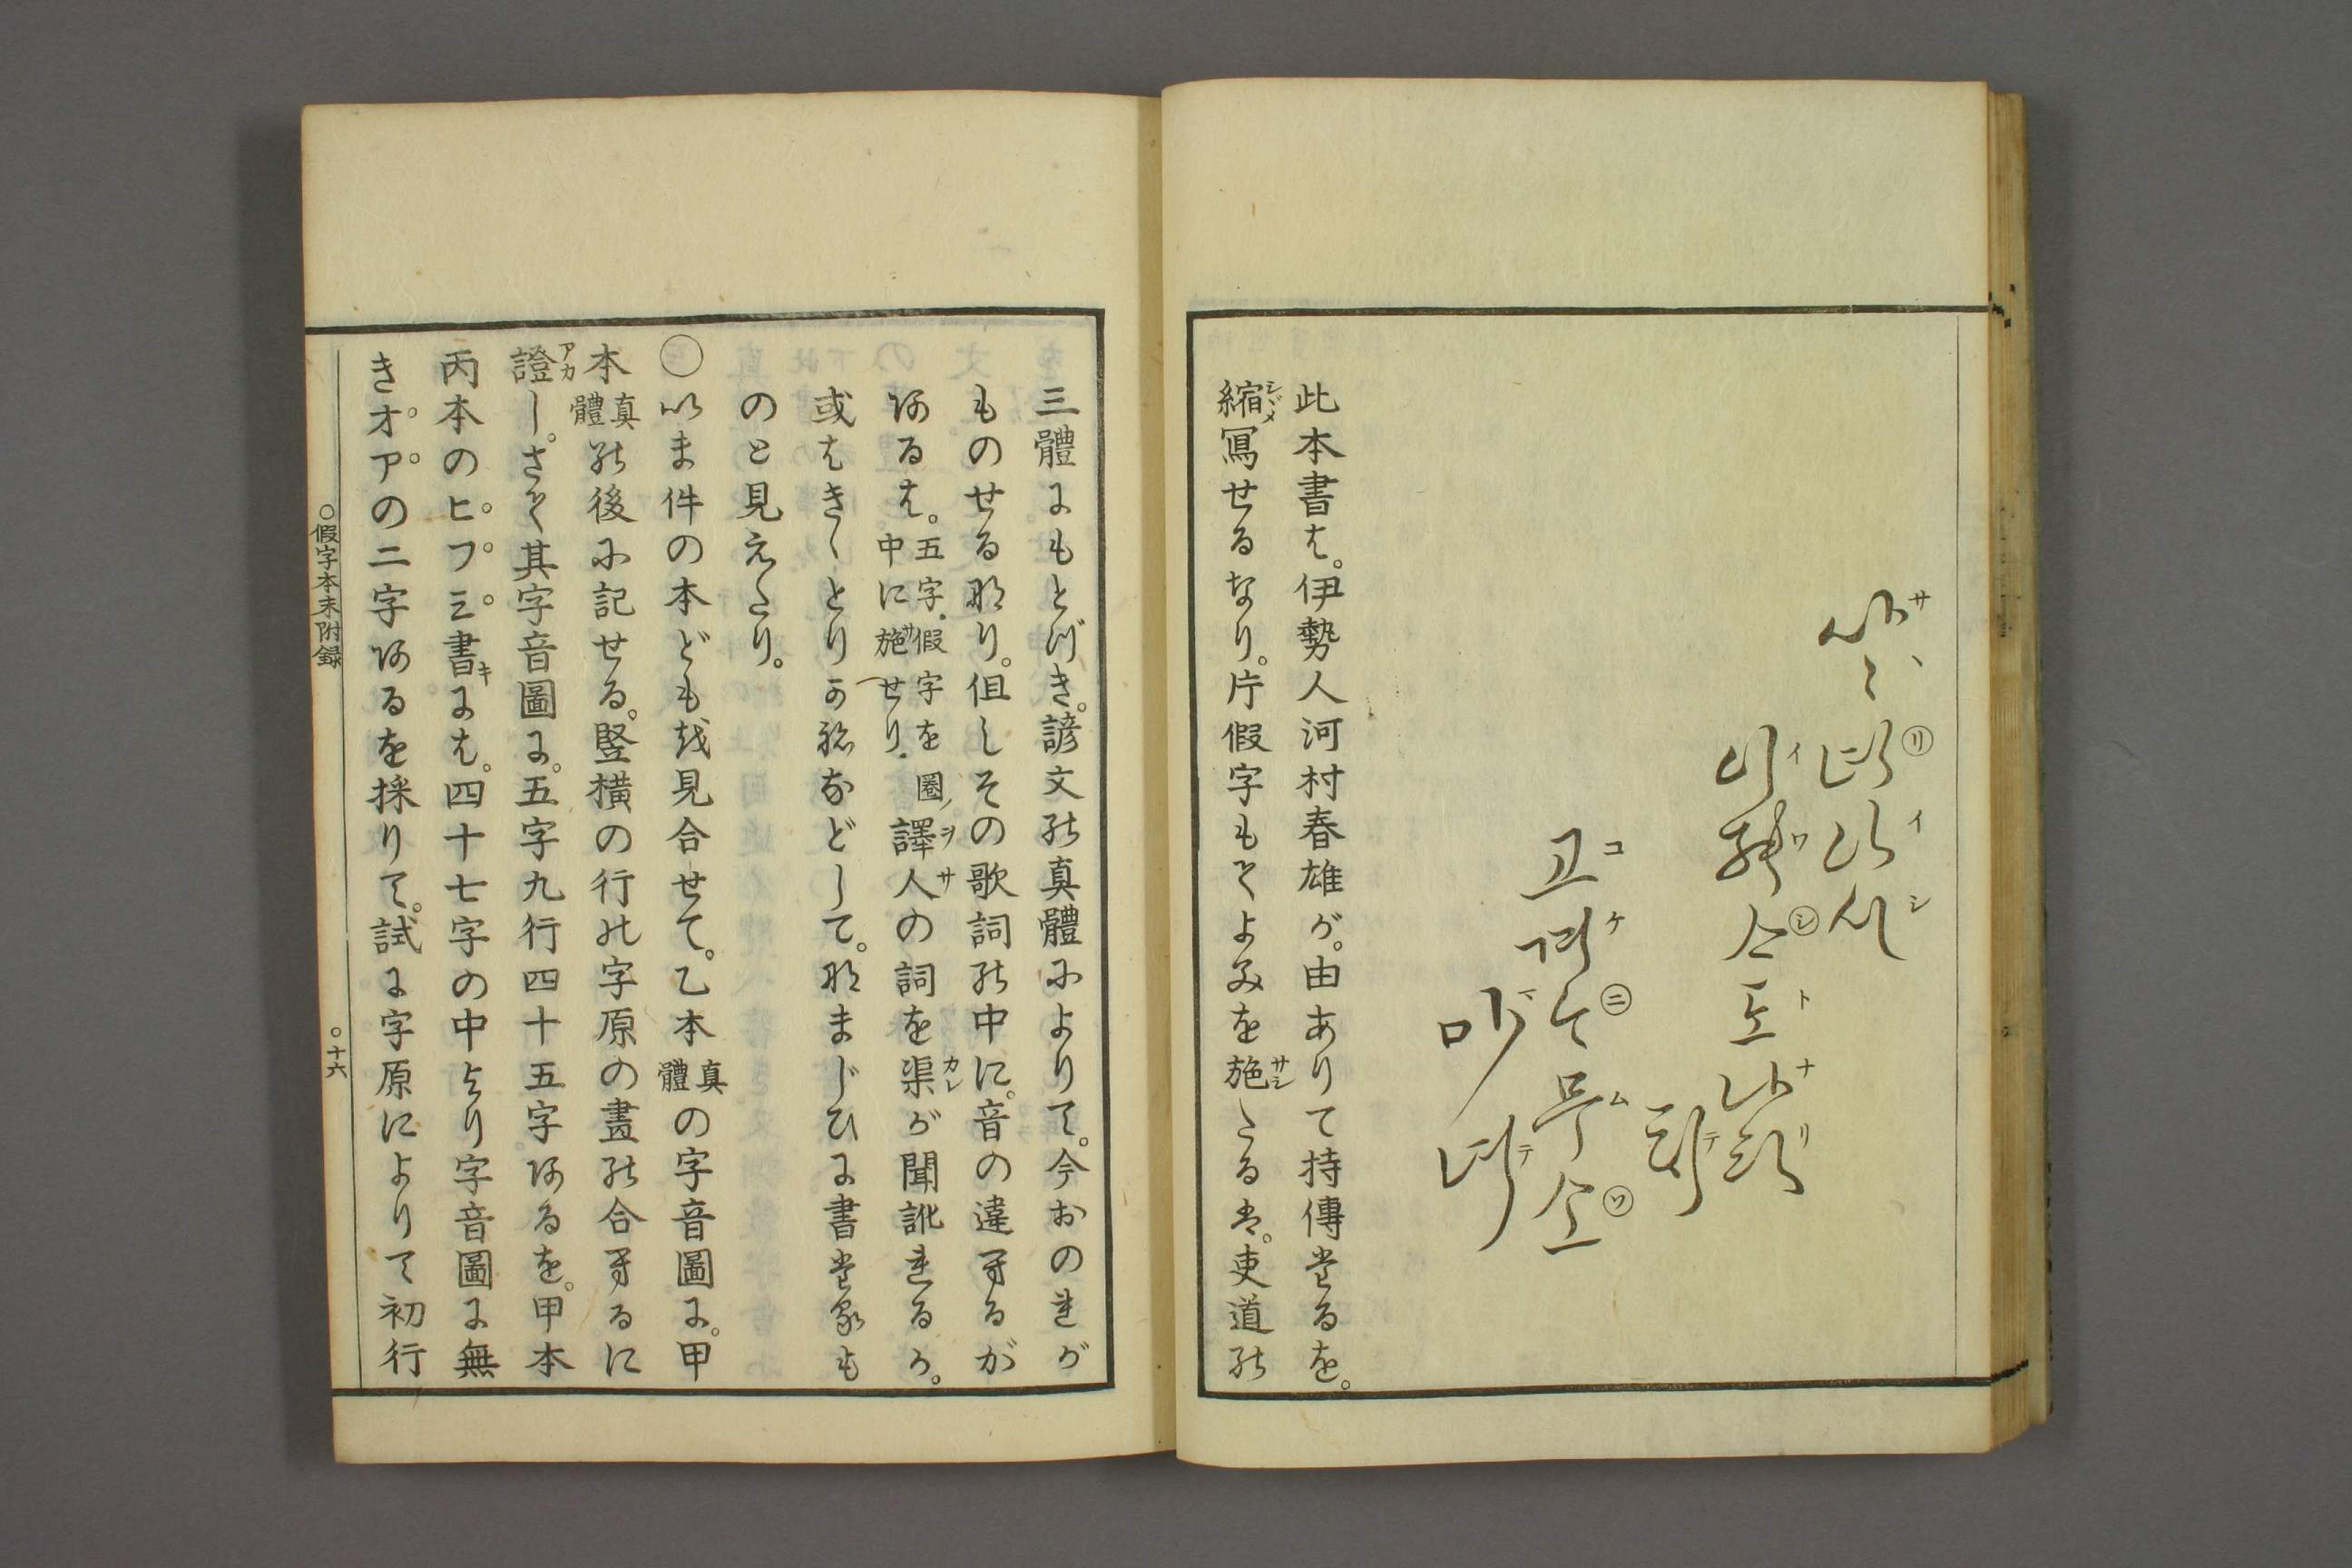 사々려이시
이와스도나리
텨
고겨느무소
마뎌
此本書は。伊勢人河村春雄が。由ありて持傳たるを。
縮冩せるなり。片假字もてよみを施たるは。吏道の
三體にもとづき。諺文の真體によりて。今おのれが
ものせるなり。但しその歌詞の中に。音の違へるが
あるは。五字.假字を圏ノ中に施せり.譯人の詞を渠が聞訛れるか。
或はきゝとりかねなどして。なまじひに書たるも
のと見えたり。
○いま件の本どもを見合せて。乙本真體の字音圖に。甲
本真體の後に記せる。竪横の行の字原の畫の合へるに
證し。さて其字音圖に。五字九行四十五字あるを。甲本
丙本のヒ。フ。ミ。書には。四十七字の中より字音圖に無
きオ。ア。の二字あるを採りて。試に字原によりて初行
○假字本末附録 ○十六